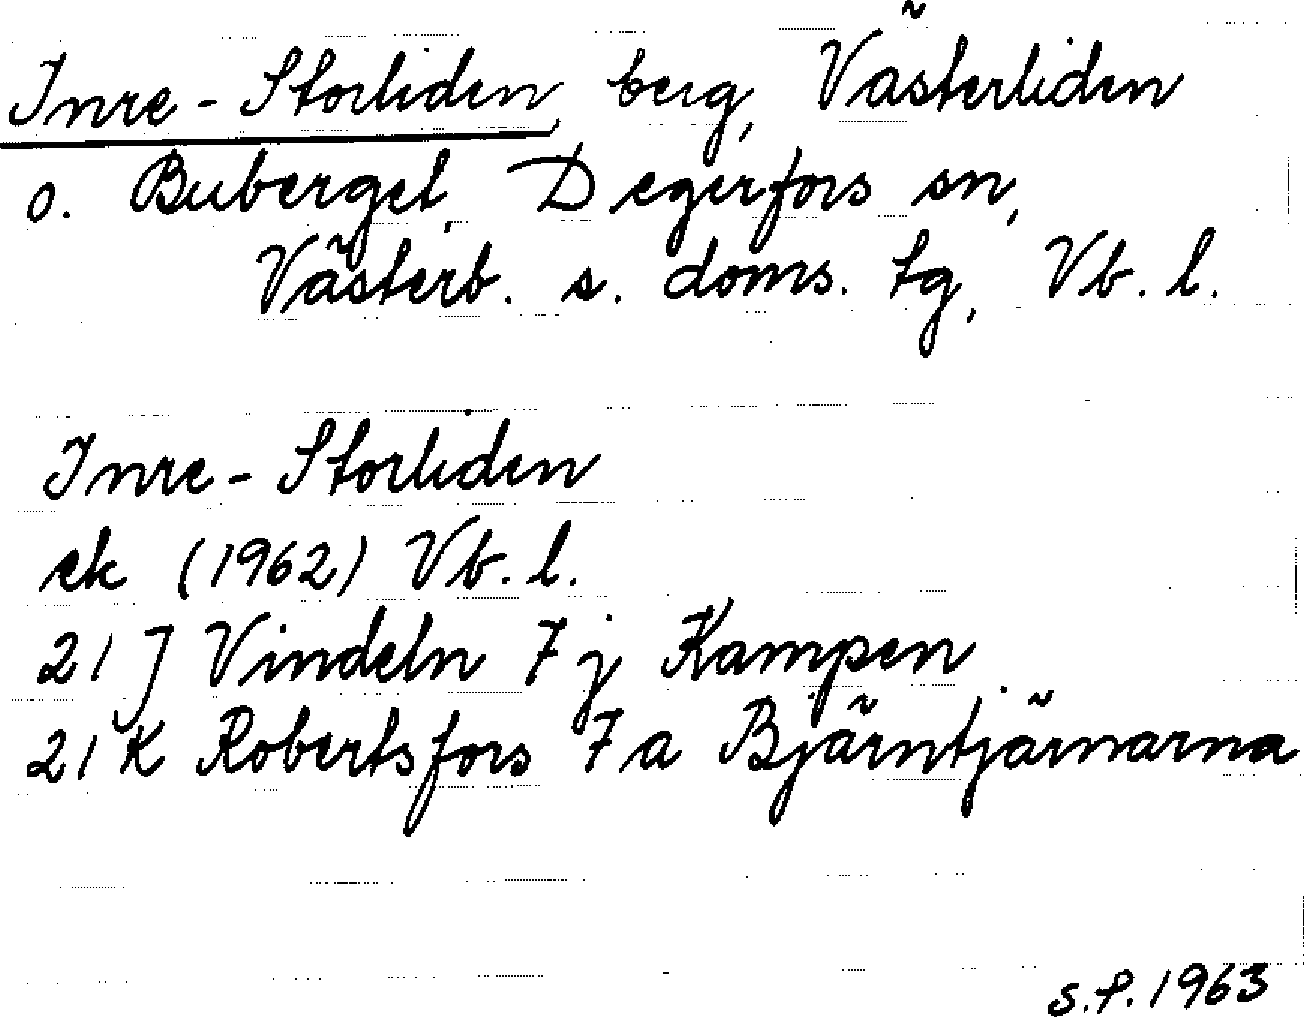 Inre-Storliden, berg, Västerliden
o. Buberget, Degerfors sn,
Västerb. s. doms. tg, Vb. l.
Inre-Storliden
ek (1962) Vb. l.
21 J Vindeln 7 j Kampen
21 K Robertsfors 7 a Bjärntjärnarna
S.P. 1963